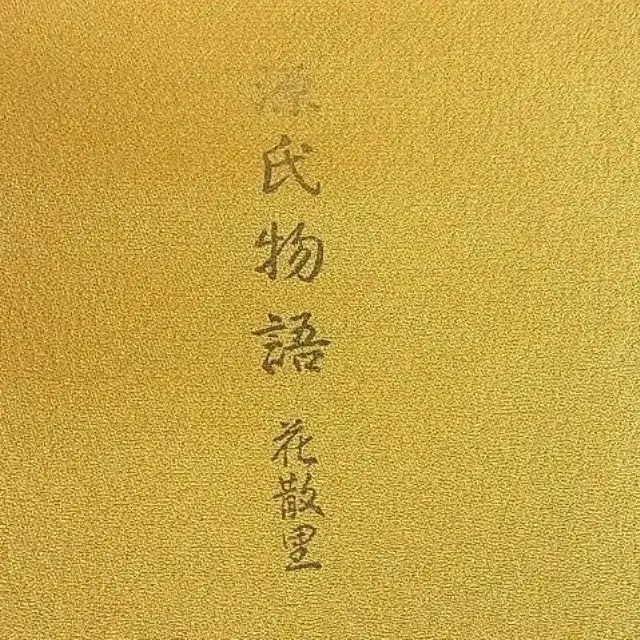 源氏物語 花散里